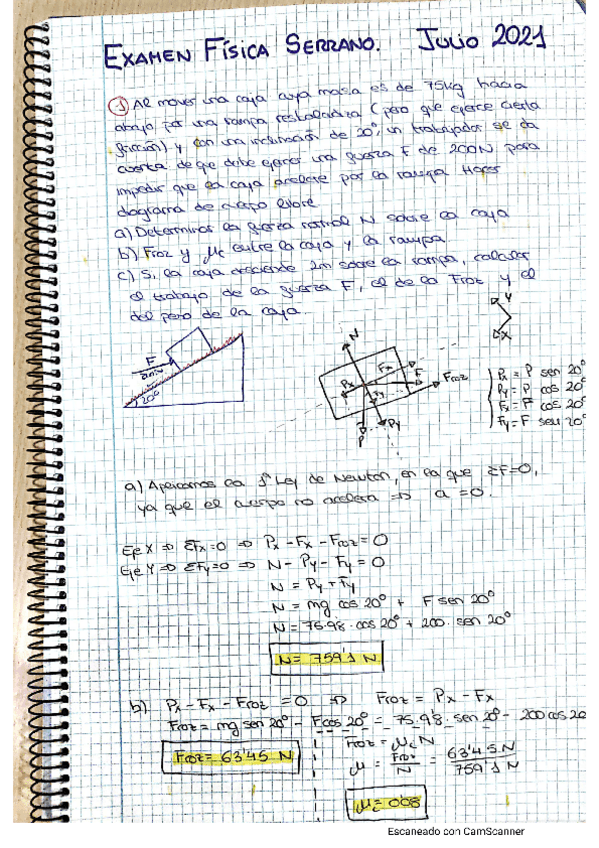 EXAMEN FÍSICA SERRANO. JULIO 2021
① Al mover una caja cuya masa es de 75Kg hacia
abajo por una rampa resbaladiza (pero que ejerce cierta
fricción) y con una inclinación de 20°, un trabajador se da
cuenta de que debe ejercer una fuerza F de 200N para
impedir que la caja acelere por la rampa. Hacer
diagrama de cuerpo libre.
a) Determinar la fuerza normal N sobre la caja
b) Froz y μc entre la caja y la rampa
c) Si la caja desciende 2m sobre la rampa, calcular
el trabajo de la fuerza F, el de la Froz y el
del peso de la caja.
Y
X
F
20°
N
Fx
F
Froz
Px
Fy
Py
P
Px = P sen 20°
Py = P cos 20°
Fx = F cos 20°
Fy = F sen 20°
a) Aplicamos la 1ª Ley de Newton, en la que ΣF=0,
ya que el cuerpo no acelera ⇒ a = 0.
Eje X ⇒ ΣFx=0 ⇒ Px - Fx - Froz = 0
Eje Y ⇒ ΣFy=0 ⇒ N - Py - Fy = 0
N = Py + Fy
N = mg cos 20° + F sen 20°
N = 75·9'8·cos 20° + 200·sen 20°
N = 759'1 N
b) Px - Fx - Froz = 0 ⇒ Froz = Px - Fx
Froz = mg sen 20° - Fcos 20° = 75·9'8·sen 20° - 200 cos 20
Froz = 63'45 N
Froz = μc N
μ = Froz / N = 63'45 N / 759'1 N
μc = 0'08
Escaneado con CamScanner